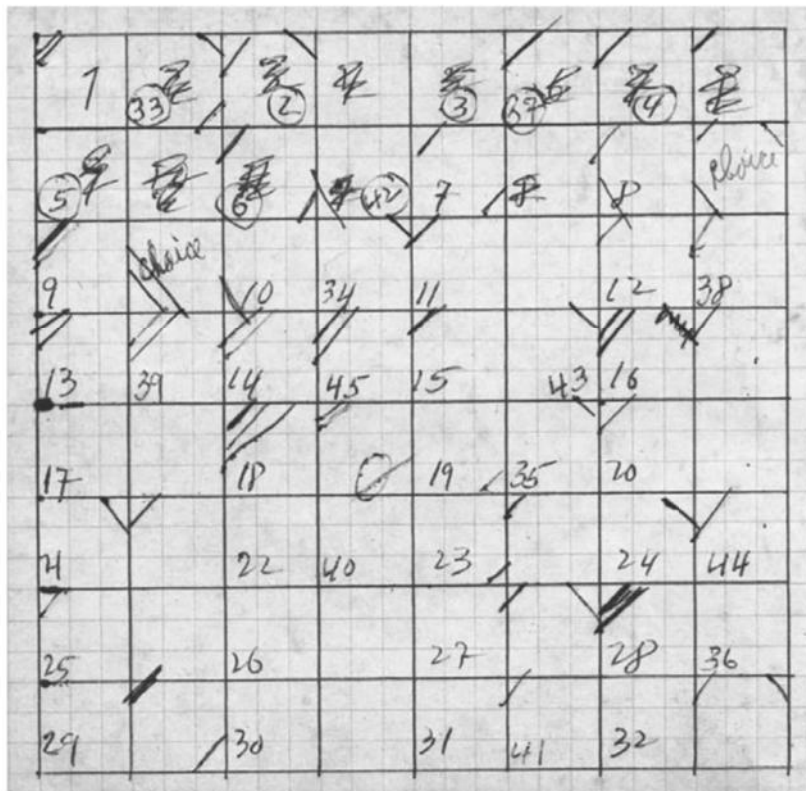 1 33 2 3 37 4
5 6 42 7 8 choice
choice
9 10 34 11 12 38
13 39 14 45 15 43 16
17 18 19 35 20
22 40 23 24 44
25 26 27 28 36
29 30 31 41 32